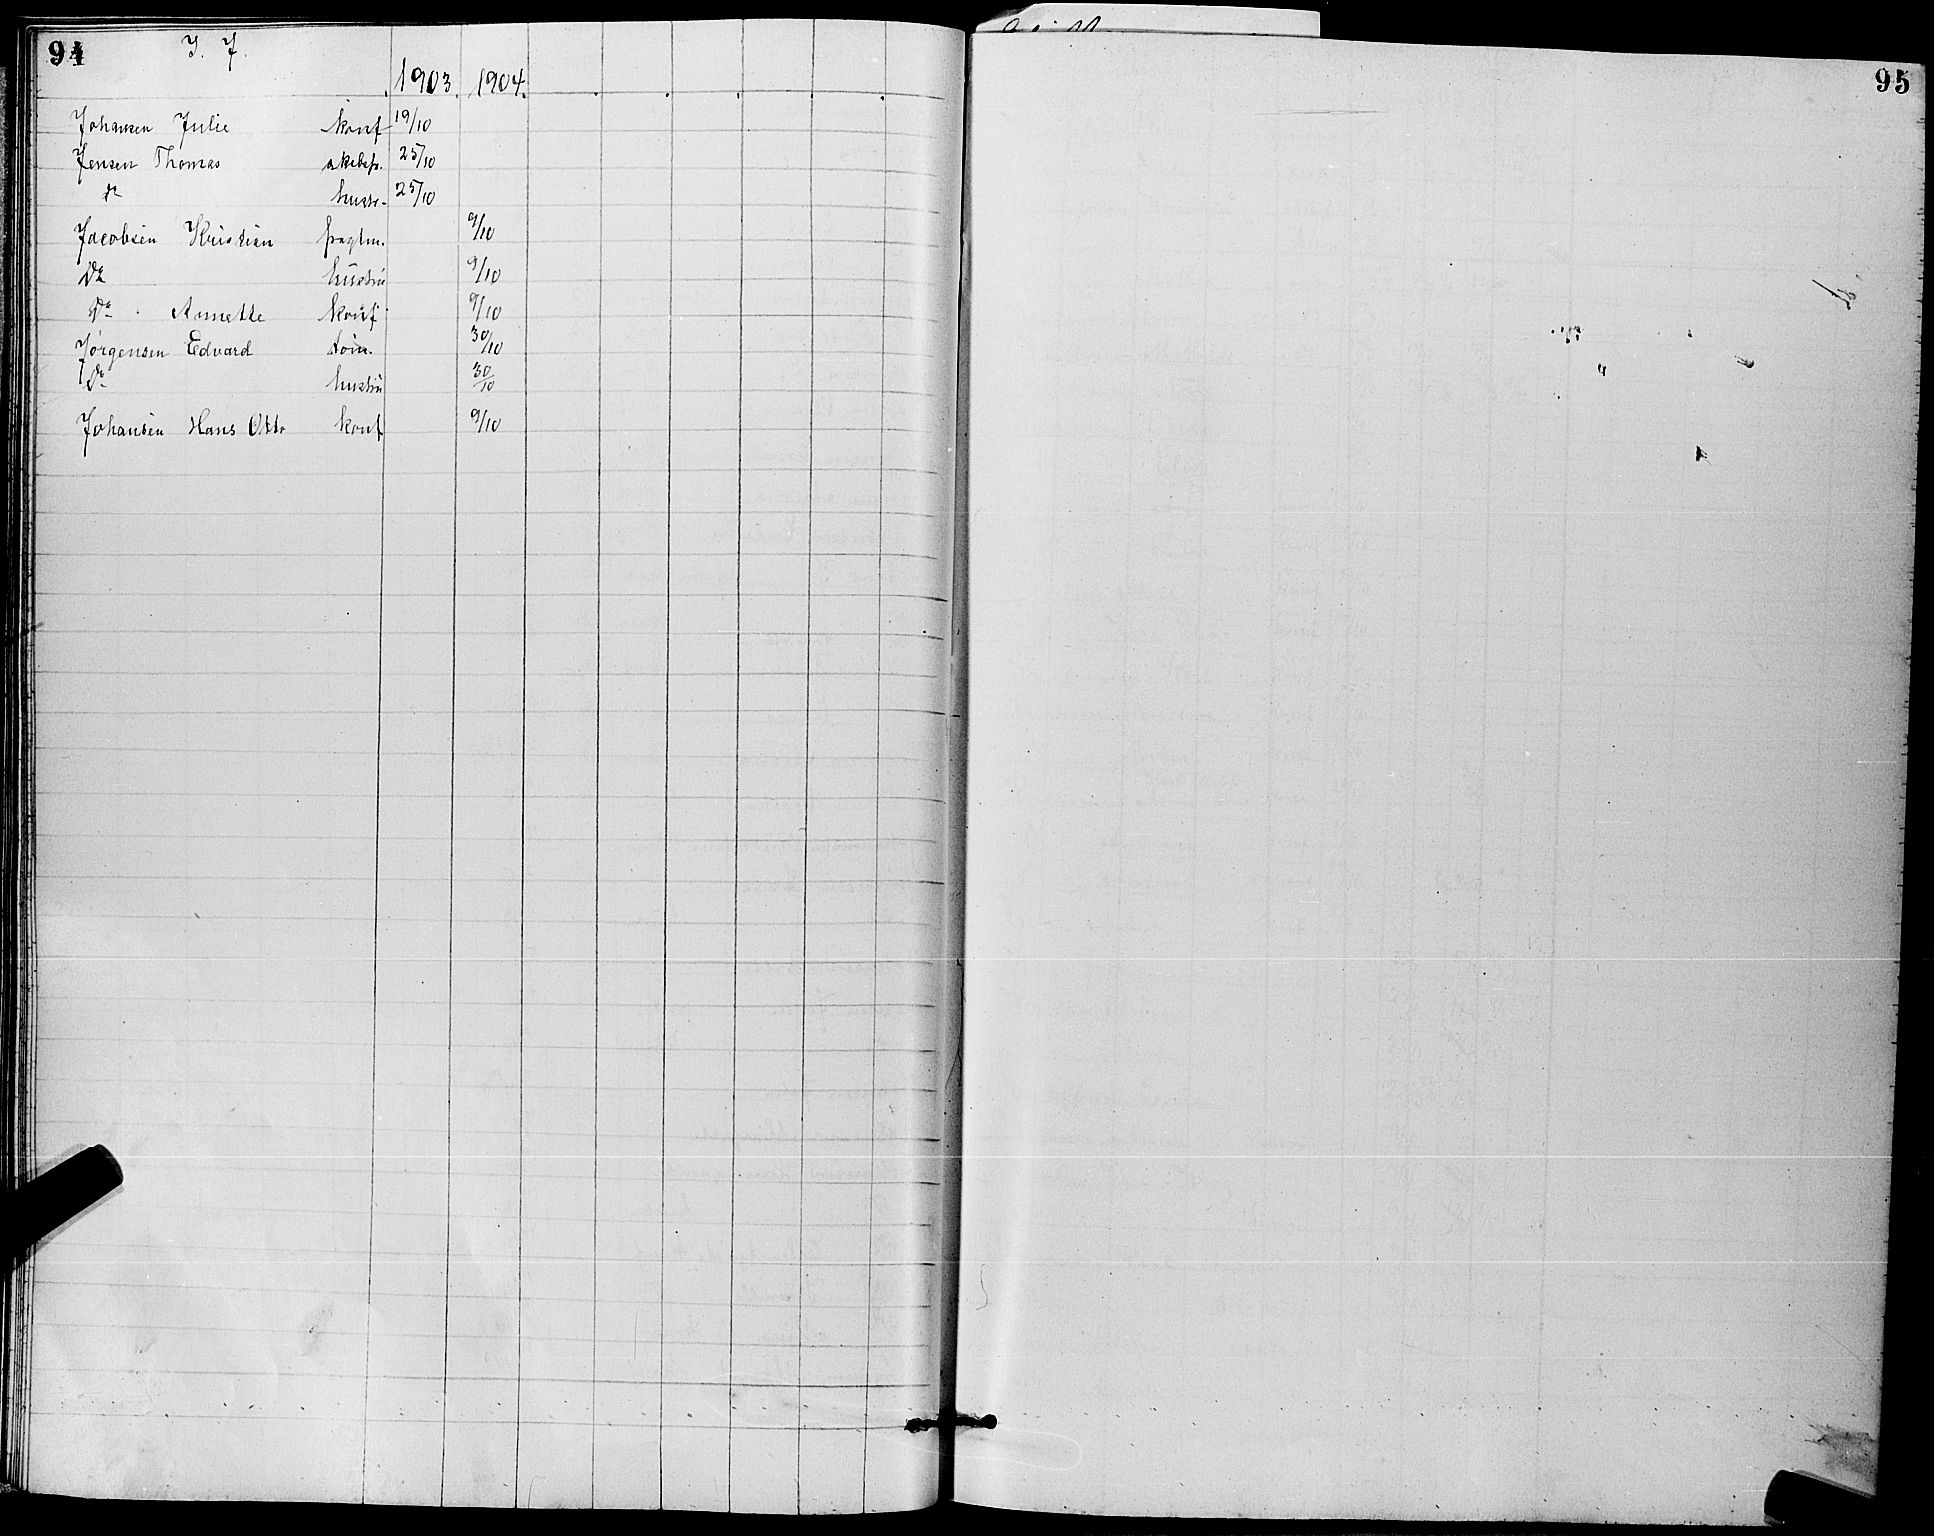 94
I. J.
1903. 1904.
Johansen Julie konf 19/10
Jensen Thomas skibsfr. 25/10
do hustr. 25/10
Jacobsen Kristian fragtm. 9/10
Do hustru 9/10
Do Annette konf 9/10
Jørgensen Edvard tøm. 30/10
Do hustru 30/10
Johansen Hans Otto konf 9/10
95